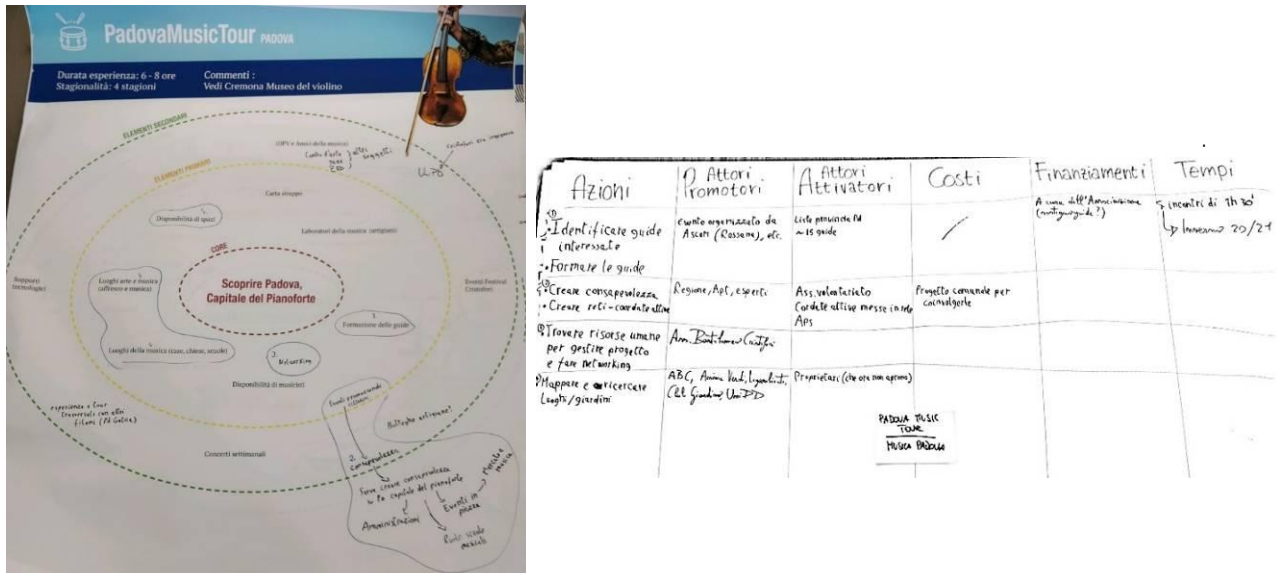 PadovaMusicTour PADOVA
Durata esperienza: 6 - 8 ore
Stagionalità: 4 stagioni
Commenti :
Vedi Cremona Museo del violino
ELEMENTI SECONDARI
ELEMENTI PRIMARI
CORE
Scoprire Padova,
Capitale del Pianoforte
(OPV e Amici della musica)
Carta strappo
Disponibilità di spazi
Laboratori della musica (artigiani)
Rapporti
(tecnologie)
Luoghi arte e musica
(affresco e musica)
Eventi Festival
Cristofori
1.
Formazione delle guide
Luoghi della musica (case, chiese, scuole)
3.
Networking
Disponibilità di musicisti
esperienze e tour
trasversali con altri
filoni (Pd Galilea)
Concerti settimanali
Botteghe artigiane?
2.
consapevolezza
creare consapevolezza
Pd capitale del pianoforte
Amministrazioni
Eventi in
piazza
Ruolo scuole
musicali
Azioni
Attori
Promotori
Attori
Attivatori
Costi
Finanziamenti
Tempi
Identificare guide
interessate
Formare le guide
evento organizzato da
Ascom (Rossana), etc.
Lista provincia Pd
~ 15 guide
A cura dell'Associazione
5 incontri di 1h 30'
Inverno 20/21
Creare consapevolezza
Creare reti-cordate attive
Regione, Apt, esperti
Ass. volontariato
Cordate attive messe in rete
Aps
Progetto comande per
coinvolgerle
Trovare risorse umane
per gestire progetto
e fare networking
Ass. Bartolomeo Cristofori
Mappare e ricercare
Luoghi/giardini
ABC, Anima Verdi, Legambiente,
Giardino, UniPD
Proprietari (che ora non aprono)
PADOVA MUSIC
TOUR
MUSICA PADOVA